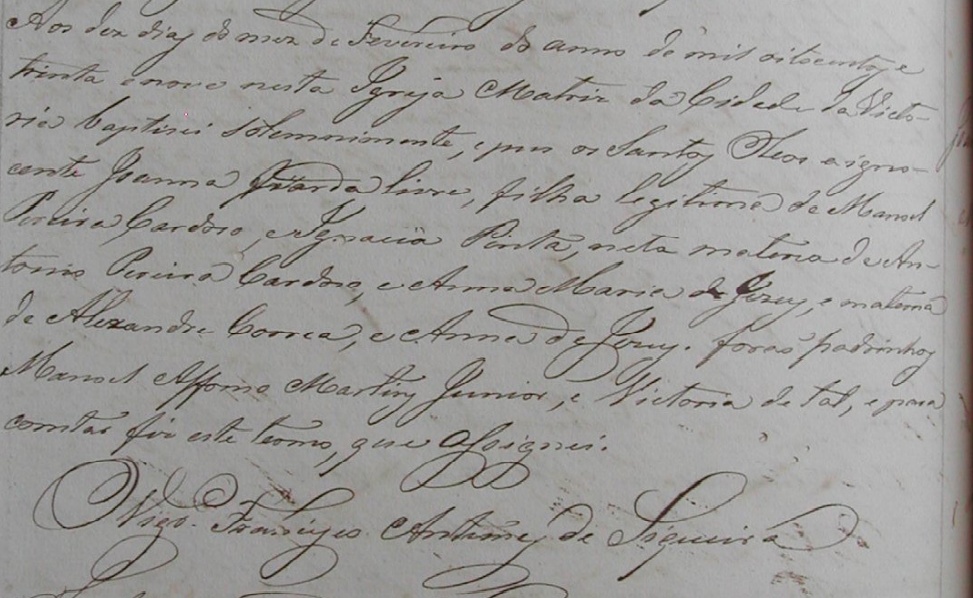 Aos dez dias do mez de Fevereiro do anno de mil oitocentos e
trinta e nove nesta Igreja Matriz da Cidade da Victo-
ria baptisei solemnimente, e pus os Santos Oleos a igno-
cente Joanna Parda livre, filha legitima de Manoel
Pereira Cardoso, e Ignacia Pinta, neta materna de An-
tonio Pereira Cardoso, e Anna Maria de Jezus, e materna
de Alexandre Correa, e Anna de Jezus. forão padrinhos
Manoel Affonso Martins Junior, e Victoria de tal, e para
constar fiz este termo, que assignei.
Vigo. Francisco Antunes de Siqueira